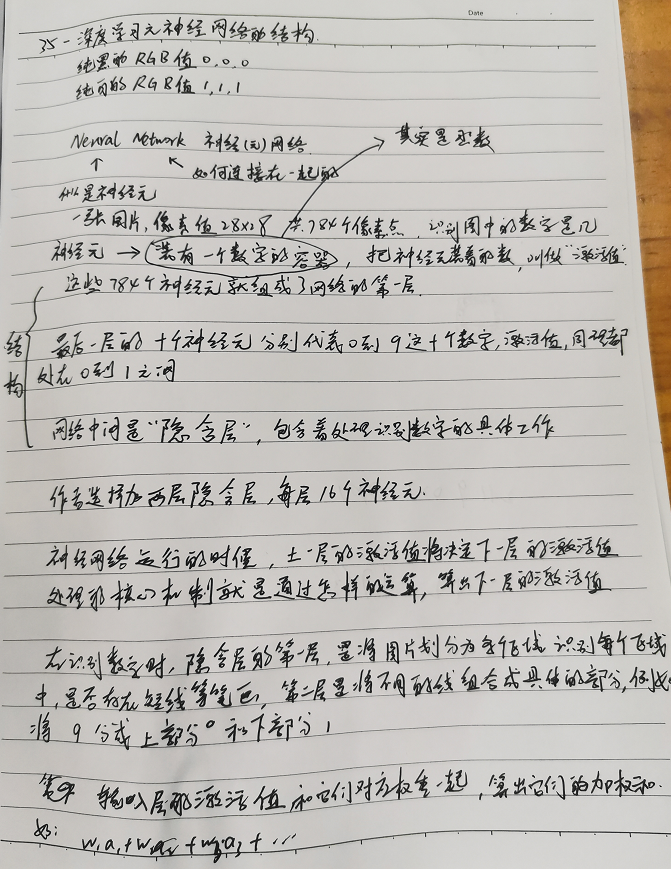 Date
35-深度学习之神经网络的结构.
纯黑的RGB值 0,0,0
纯白的RGB值 1,1,1
Neural Network 神经(元)网络. 其实是函数
如何连接在一起的
什么是神经元
一张图片,像素值28×28 共784个像素点. 识别图中的数字是几
神经元 → 装有一个数字的容器, 把神经元装着的数,叫做"激活值"
这些784个神经元就组成了网络的第一层.
结构
最后一层的十个神经元分别代表0到9这十个数字,激活值,同理都
处在0到1之间
网络中间是"隐含层",包含着处理识别数字的具体工作
作者选择加两层隐含层,每层16个神经元.
神经网络运行的时候,上一层的激活值将决定下一层的激活值
处理的核心机制就是通过怎样的运算,算出下一层的激活值
在识别数字时,隐含层的第一层,是将图片划分为各个区域 识别每个区域
中,是否存在短线等笔画,第二层是将不同的线组合成具体的部分,例如
将 9 分成上部分o和下部分1
输入层的激活值和它们对应权重一起,算出它们的加权和.
如: w₁a₁+w₂a₂+w₃a₃+…